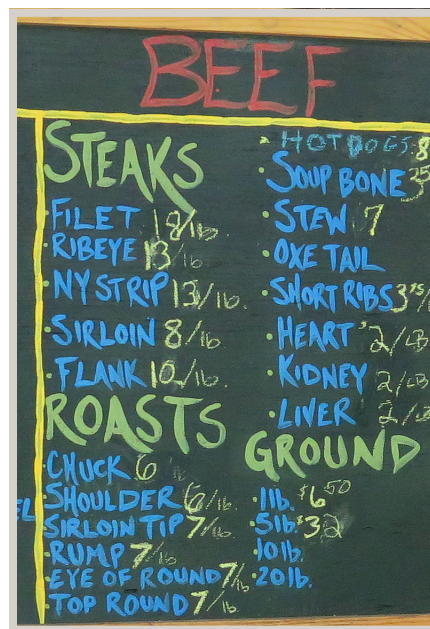 BEEF
STEAKS
FILET 18/lb.
RIBEYE 13/lb
NY STRIP 13/lb.
SIRLOIN 8/lb.
FLANK 10/lb.
ROASTS
CHUCK 6
SHOULDER 6/lb.
SIRLOIN TIP 7/lb.
RUMP 7/lb
EYE OF ROUND 7/lb.
TOP ROUND 7/lb.
HOT DOGS 8
SOUP BONE
STEW 7
OXE TAIL
SHORT RIBS 3
HEART 2/LB
KIDNEY 2/LB
LIVER 2/LB
GROUND
1lb. $6.50
5lb. $32
10lb.
20lb.